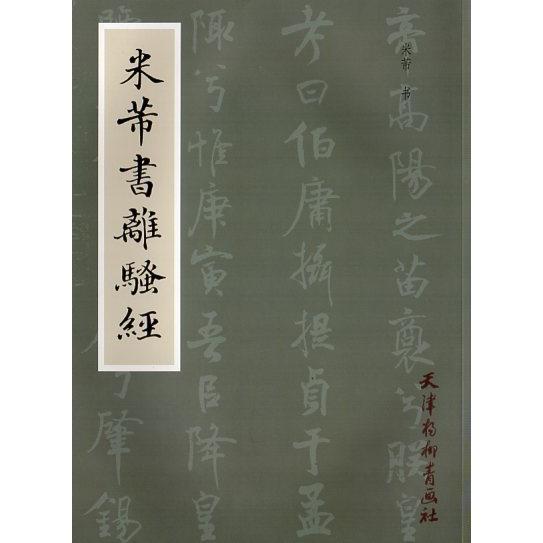 米芾書離騷經
米芾 书
帝高陽之苗裔兮朕皇
考曰伯庸攝提貞于孟
陬兮惟庚寅吾㠯降皇
兮肇錫
天津杨柳青画社